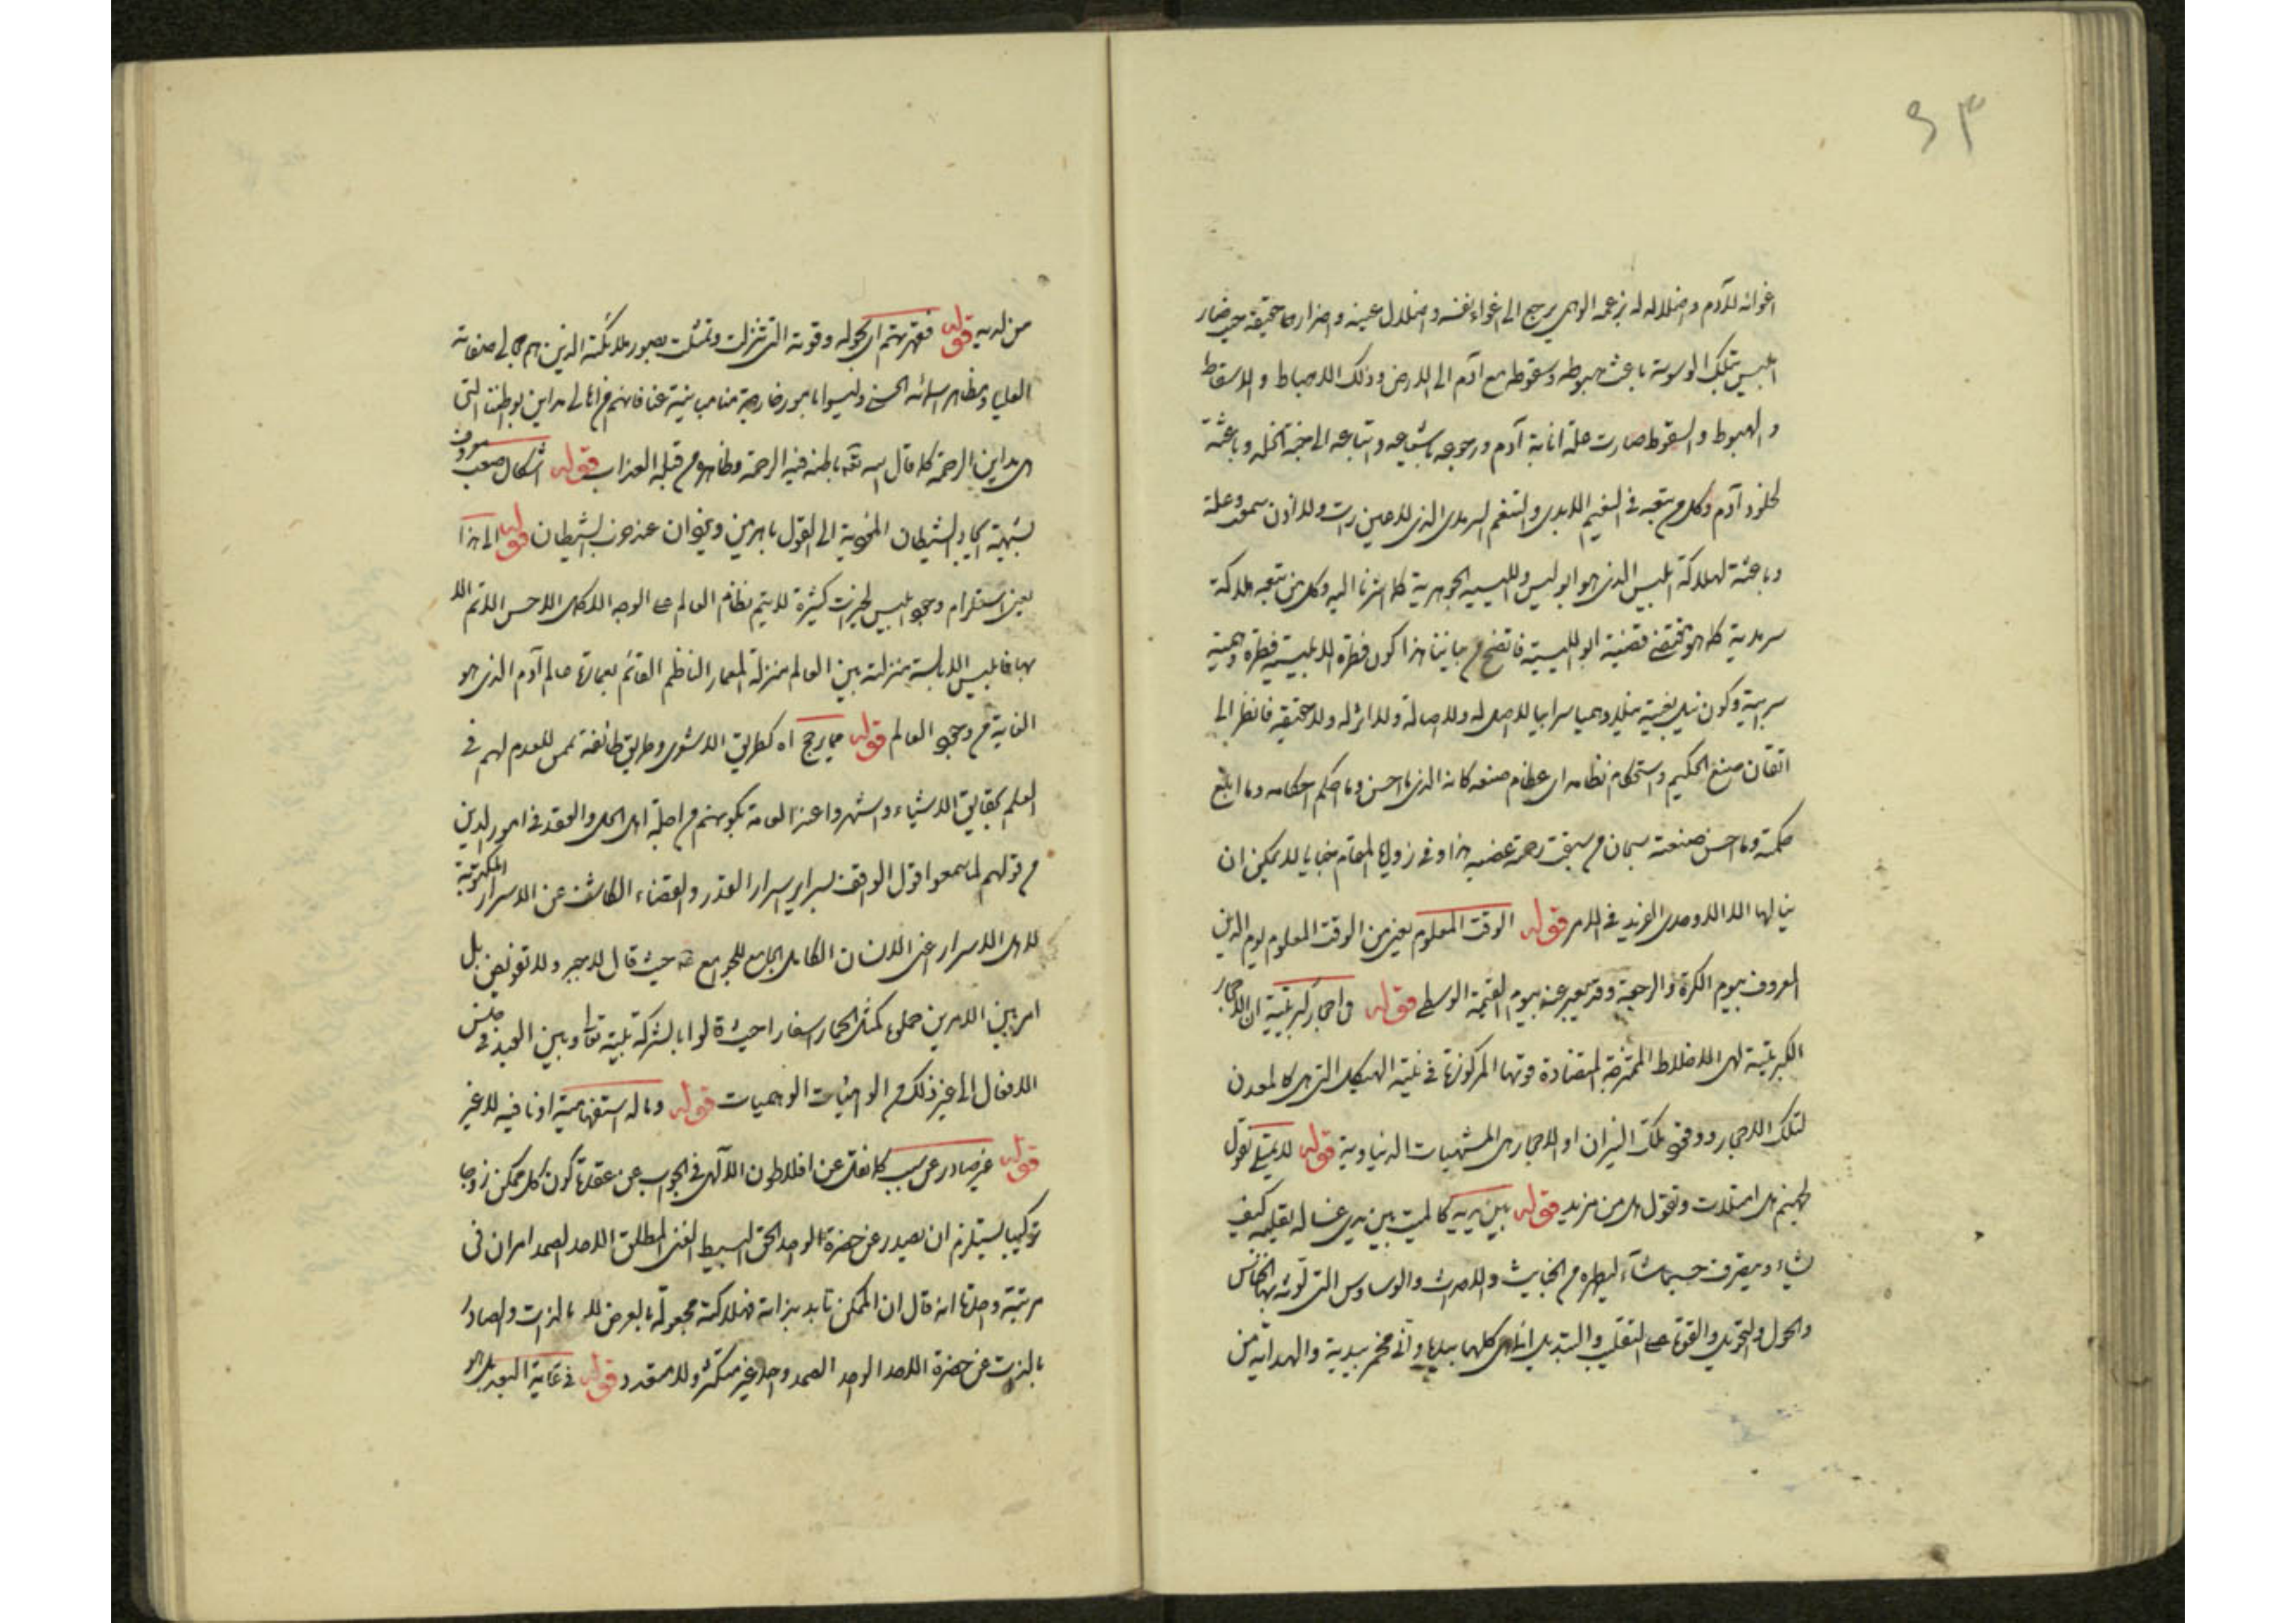 ٤٣
اغوائه للآدم واضلاله له بزعمه الوهمي يرجع الى اغواء نفسه واضلال عينه واضراره حقيقة حيث صار
ابليس بتلك الوسوسة باعث هبوطه وسقوطه مع آدم الى الارض وذلك الاهباط والاسقاط
والهبوط والسقوط صارت علة انابة آدم ورجوعه باشياعه واتباعه الى جنة الخلد وباعثة
لخلود آدم وكل من يتبعه في النعيم الابدي والتنعم السرمدي الذي لا عين رأت ولا اذن سمعت وعلة
وباعثة لهلاكة ابليس الذي هو ابو ليس والليسية الجوهرية كما اشرنا اليه وكل من يتبعه هلاكة
سرمدية كما هو مقتضى قضية ابو الليسية فاتضح من بياننا هذا كون فطرة الابليسية فطرة وهمية
سرابية وكون نيل بغيته نيلا وهميا سرابيا لا اصل له ولا اصالة ولا اثر له ولا حقيقة فانظر الى
اتقان صنع الحكيم واستحكام نظامه اي عظام صنعه كانه الذي ما احسن وما احكم احكامه وما ابلغ
حكمته وما احسن صنعته سبحان من سبقت رحمته غضبه هذا وفي زوايا المقام خبايا لا يمكن ان
ينالها الا الاوحدي الفريد في الدهر قوله الوقت المعلوم يعني من الوقت المعلوم يوم الدين
المعروف بيوم الكرة والرجعة وقد يعبر عنه بيوم القيمة الوسطى قوله واحجار كبريتية ان الاحجار
الكبريتية لهي الاخلاط الممتزجة المتضادة قوتها المركوزة في بنية الهيكل التي هي كالمعدن
لتلك الاحجار ووقود تلك النيران او الاحجار هي المشتهيات الدنياوية قوله لا يمتلي تقول
لجهنم هل امتلات وتقول هل من مزيد قوله بين يديه كالميت بين يدي غساله يقلبه كيف
يشاء ويتصرف حسبما شآء ليطهره من الخبايث والاحداث والوساوس التي لوثه بها الخناس
والحول والتحويل والقوة على التقليب والتبديل انما هي كلها بيده وانى مخمر بيديه والهداية من
من لديه قوله فقهرتهم اي بحوله وقوته التي تنزلت وتمثلت بصور ملائكته الذين هم مجالي صفاته
العليا ومظاهر اسمائه الحسنى وليسوا بامور خارجة مناسب بنية عنا فانهم من اهالي مداين بواطننا التي
هي مداين الرحمة كما قال الله تعه باطنه فيه الرحمة وظاهره من قبله العذاب قوله اشكال صعب معروف
بشبهة ايجاد الشيطان المحوجة الى القول باهرمن ويزدان عند حزب الشيطان قوله الى هذا
يعني استلزام وجود ابليس لخيرات كثيرة لا يتم نظام العالم على الوجه الاكمل الاحسن الاتم الا
بها فابليس الابالسة منزلته بين العالم منزلة المعمار الناظم القائم بعمارة عالم آدم الذي هو
الغاية من وجود العالم قوله مما رجح اه كطريق الاشعري وطريق طائفة ممن لا قدم لهم في
العلم بحقايق الاشياء واشتهروا عند العامة بكونهم من اجلة اهل الحل والعقد في امور الدين
من قولهم لما سمعوا قول الواقف بسراير اسرار القدر والقضاء الكاشف عن الاسرار المكنونة
لاهل الاسرار اعني الانسان الكامل الجامع للجوامع ع حيث قال لا جبر ولا تفويض بل
امر بين الامرين حملوه كمثل الحمار اسفارا حيث قالوا بالشركة بينه تعالى وبين العبد في جنس
الافعال الى غير ذلك من الواهيات الوهميات قوله وما له استفهامية او نافيه لا غير
قوله غير صادر عن سبب كما نقل عن افلاطون الالهي في الجواب عن عقدة كون كل ممكن زوجا
تركيبيا يستلزم ان يصدر عن حضرة الواحد الحق البسيط الغني المطلق الاحد الصمد امران في
مرتبة وحدة انه قال ان الممكن بذاته فهلاكته مجعولة بالعرض لا بالذات والصادر
بالذات عن حضرة الاحد الواحد الصمد واحد غير متكثر ولا متعدد قوله في غاية البعد بل هو